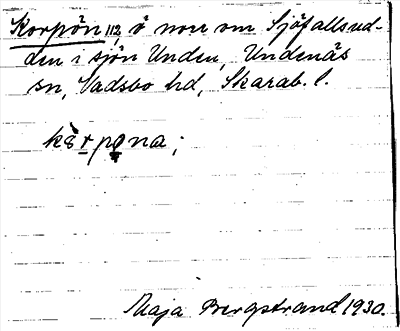 Korpön 112, ö norr om Sjöfallsud-
den i sjön Unden, Undenäs
sn, Vadsbo hd, Skarab. l.
kårpona;
Maja Bergstrand 1930.